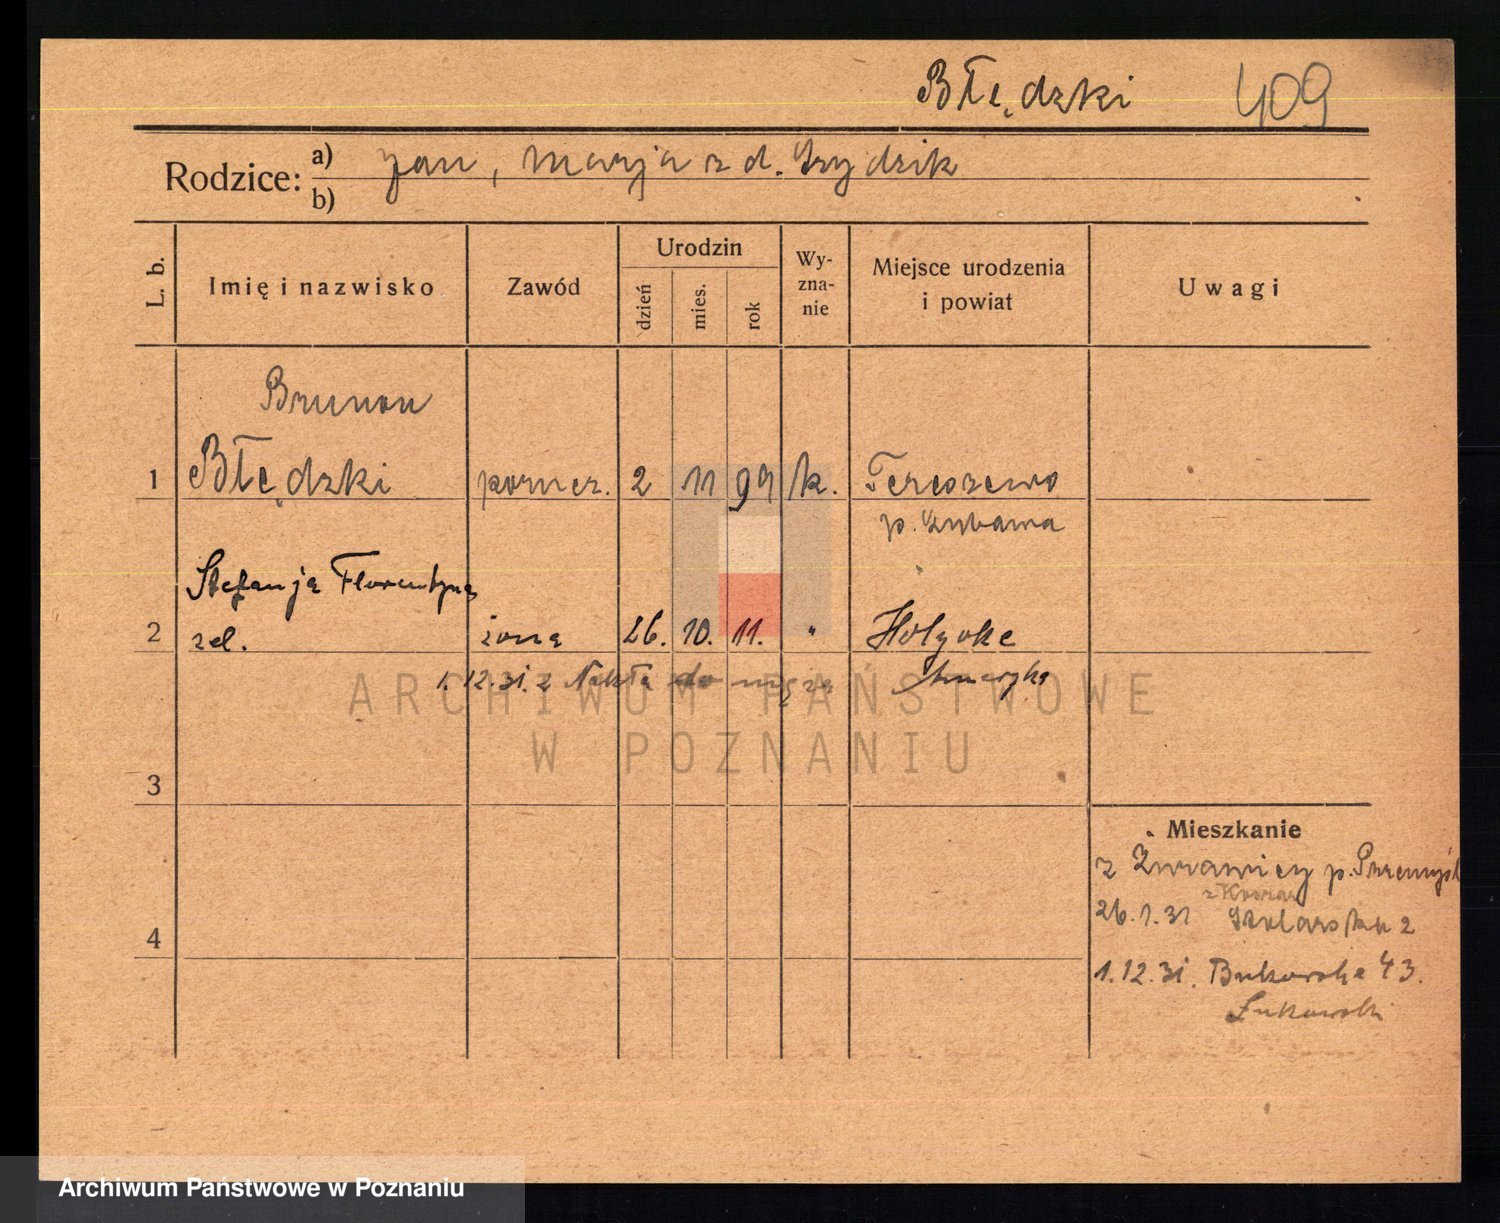 Błędzki 409
Rodzice: a) Jan, Marja z d.
b)
L. b. Imię i nazwisko Zawód Urodzin dzień mies. rok Wy-zna-nie Miejsce urodzenia i powiat Uwagi
Brunon
1 Błędzki 2 11 97 k. Tereszewo
p. Lubawa
Stefanja Florentyna
2 zel. żona 26. 10. 11. " Holyoke
1.12.31. z Nakła do męża Ameryka
3
Mieszkanie
z Żurawicy p. Przemyśl
z Koszar
26.1.31 Stolarska 2
4
1.12.31. Bukowska 43.
Łukowski
ARCHIWUM PAŃSTWOWE
W POZNANIU
Archiwum Państwowe w Poznaniu